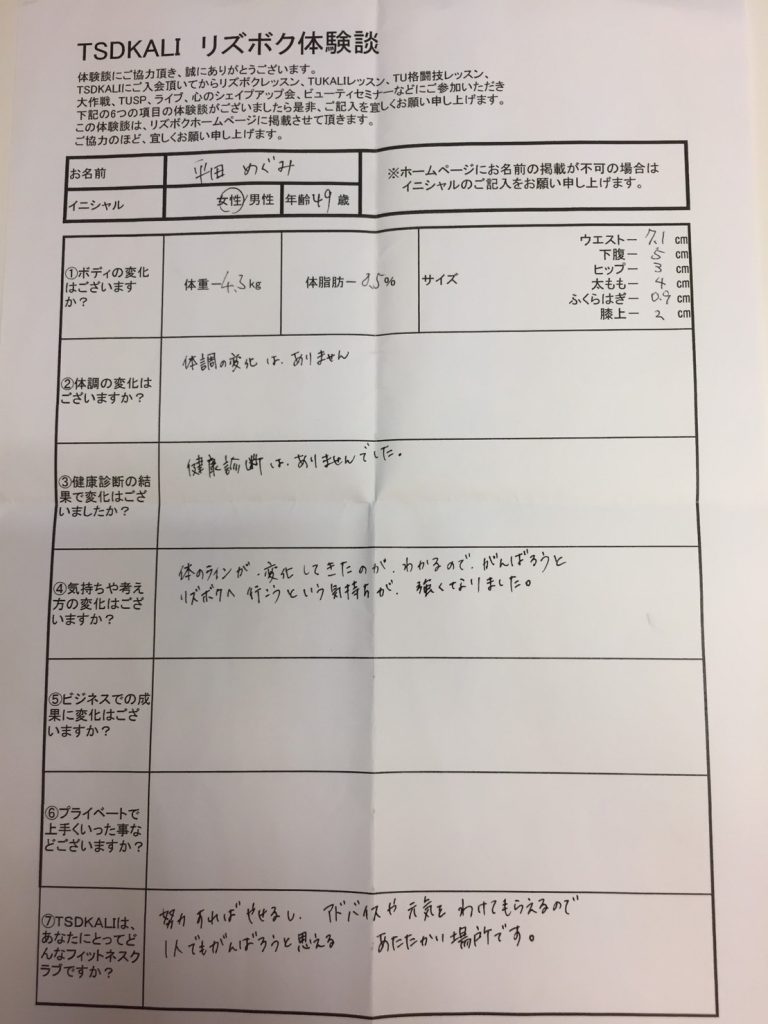 TSDKALI リズボク体験談
体験談にご協力頂き、誠にありがとうございます。
TSDKALIにご入会頂いてからリズボクレッスン、TUKALIレッスン、TU格闘技レッスン、
大作戦、TUSP、ライブ、心のシェイプアップ会、ビューティセミナーなどにご参加いただき
下記の6つの項目の体験談がございましたら是非、ご記入を宜しくお願い申し上げます。
この体験談は、リズボクホームページに掲載させて頂きます。
ご協力のほど、宜しくお願い申し上げます。
お名前 平田 めぐみ
イニシャル 女性/男性 年齢49歳
※ホームページにお名前の掲載が不可の場合は
イニシャルのご記入をお願い申し上げます。
①ボディの変化
はございます
か?
体重ー4.3kg
体脂肪ー8.5%
サイズ
ウエストー 7.1 cm
下腹ー 5 cm
ヒップー 3 cm
太ももー 4 cm
ふくらはぎー 0.9 cm
膝上ー 2 cm
②体調の変化は
ございますか?
体調の変化は、ありません
③健康診断の結
果で変化はござ
いましたか?
健康診断は、ありませんでした。
④気持ちや考え
方の変化はござ
いますか?
体のラインが、変化してきたのが、わかるので、がんばろうと
リズボクへ行こうという気持ちが、強くなりました。
⑤ビジネスでの成
果に変化はござ
いますか?
⑥プライベートで
上手くいった事な
どございますか?
⑦TSDKALIは、
あなたにとってど
んなフィットネスク
ラブですか?
努力すればやせるし、アドバイスや元気をわけてもらえるので
1人でもがんばろうと思える あたたかい場所です。